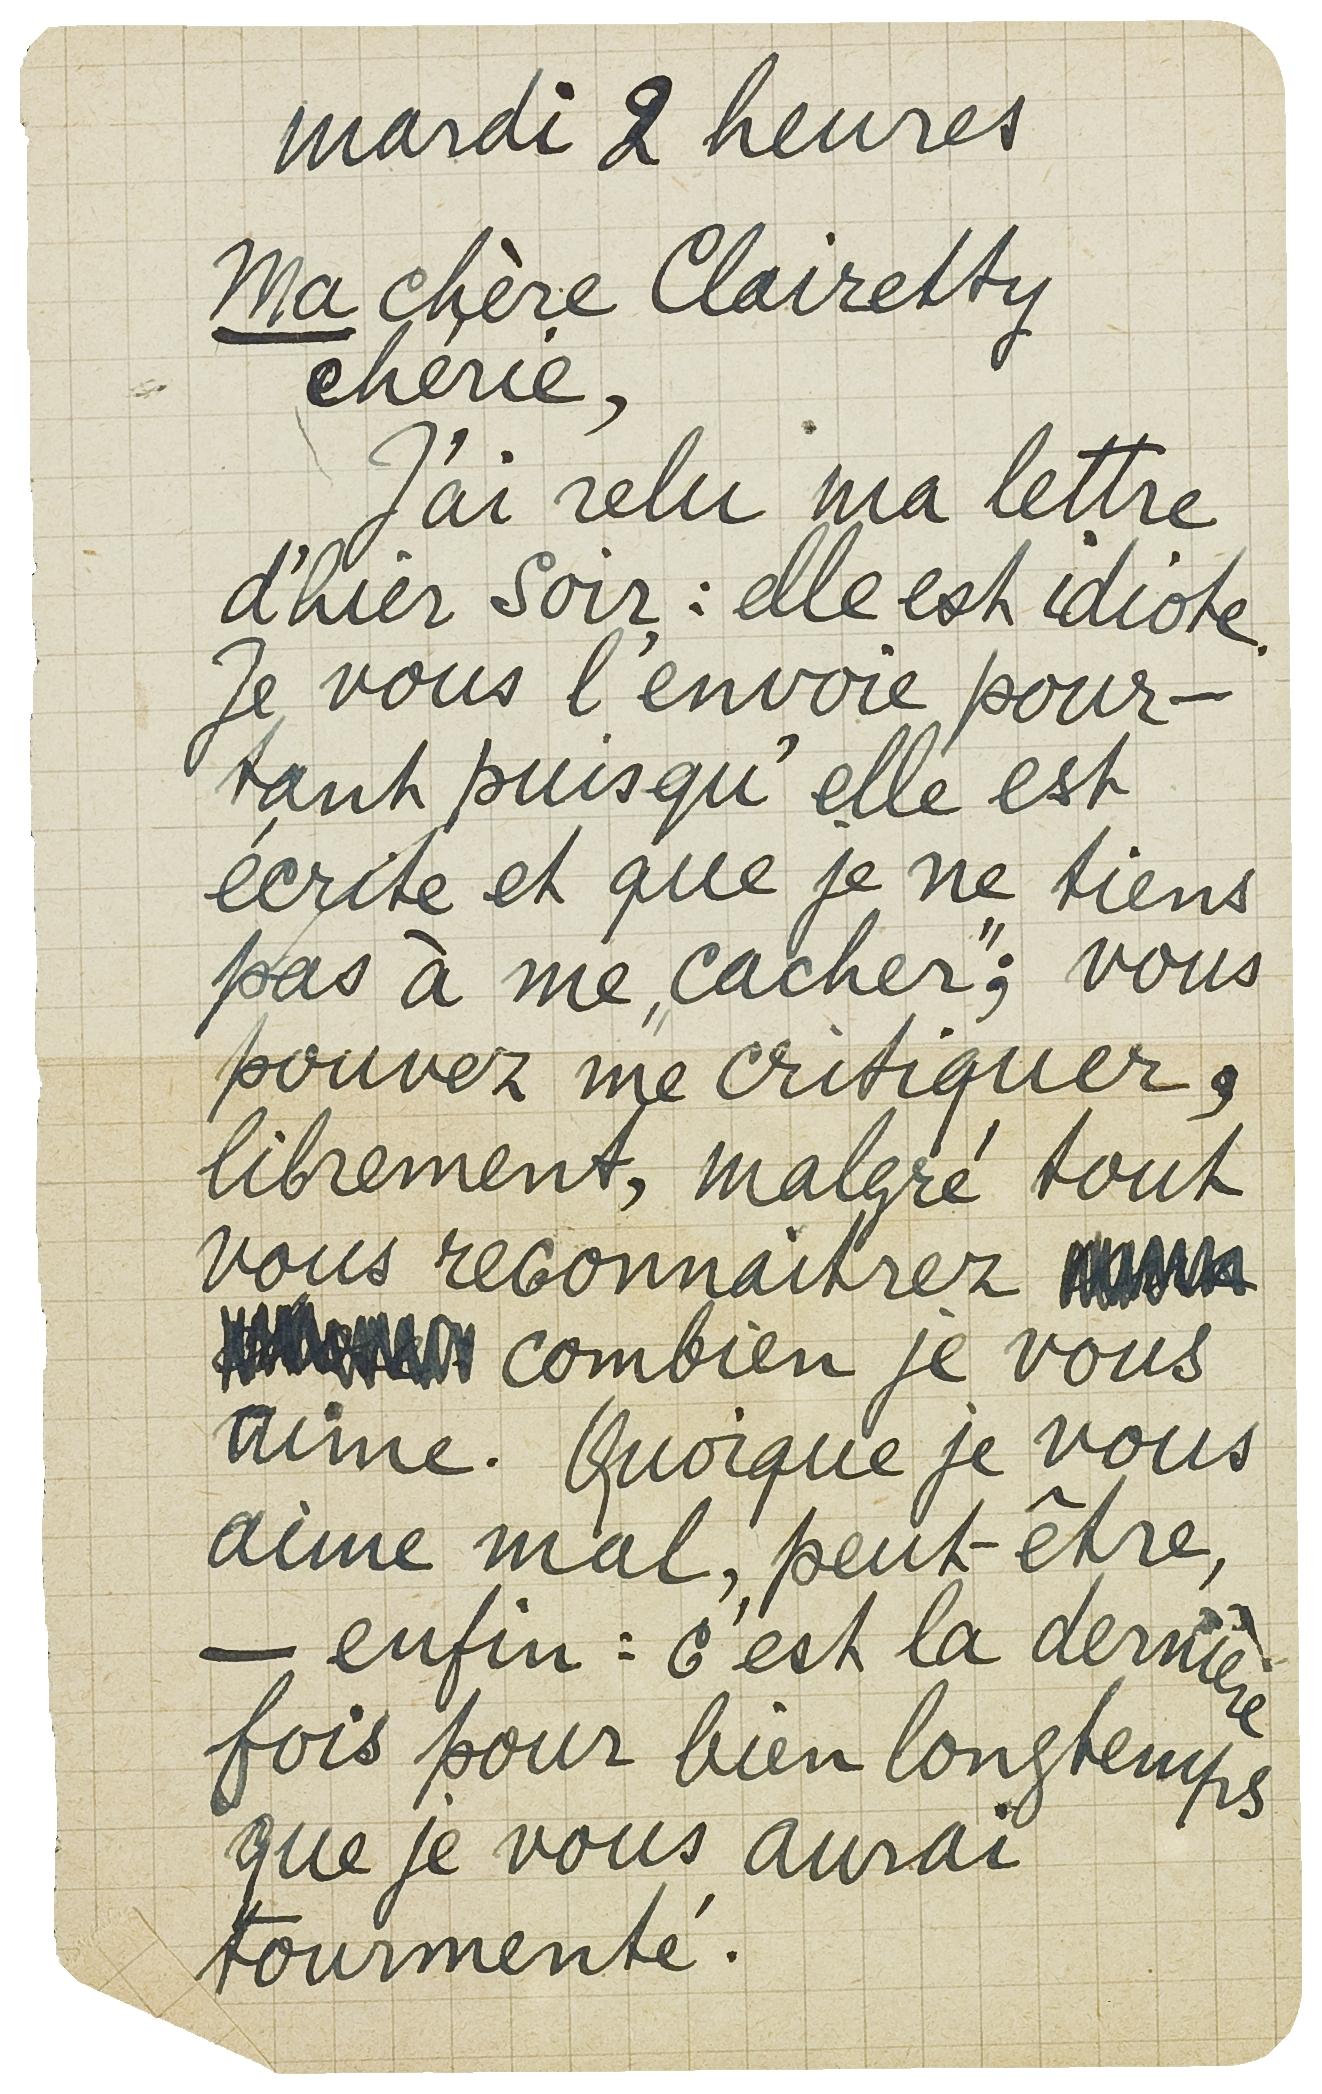 mardi 2 heures
Ma chère Clairetty
chérie,
J'ai relu ma lettre
d'hier soir : elle est idiote.
Je vous l'envoie pour-
tant puisqu'elle est
écrite et que je ne tiens
pas à me „cacher"; vous
pouvez me critiquer,
librement, malgré tout
vous reconnaitrez
combien je vous
aime. Quoique je vous
aime mal, peut-être,
— enfin : c'est la dernière
fois pour bien longtemps
que je vous aurai
tourmenté.